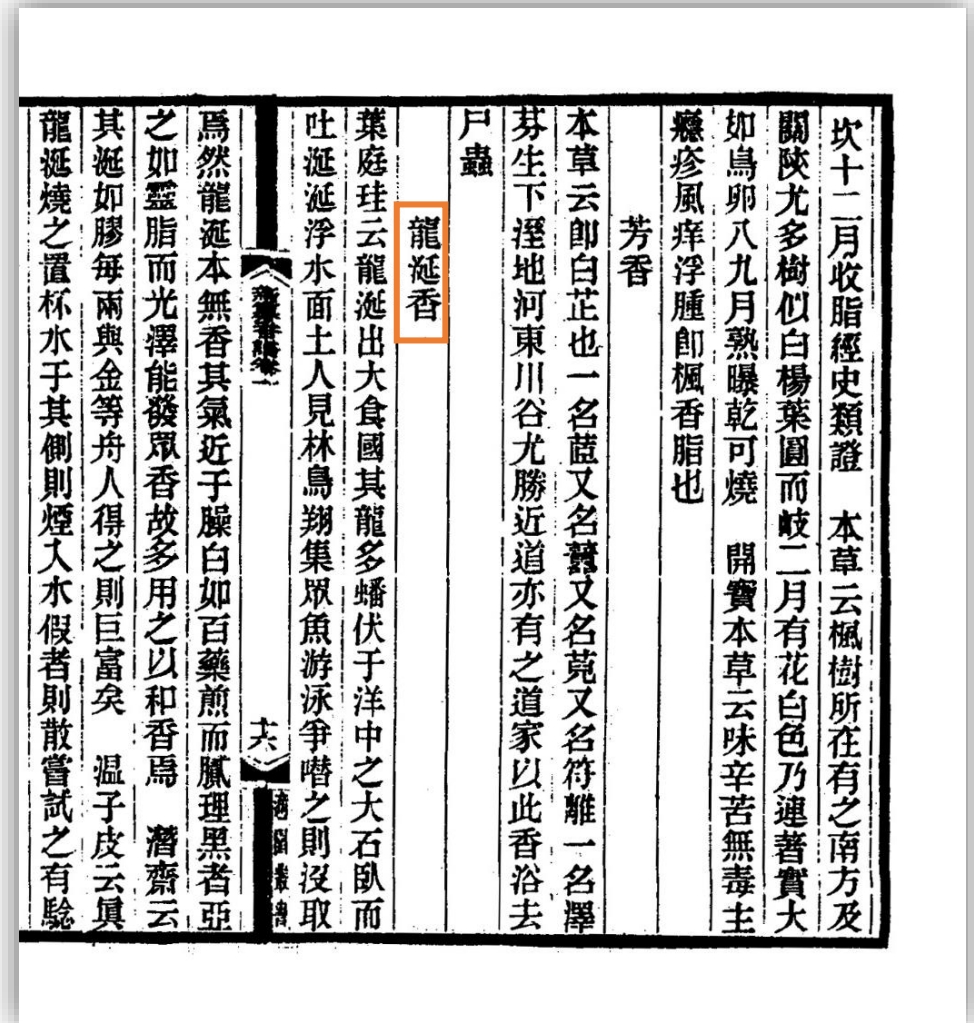 坎十二月收脂經史類證　本草云楓樹所在有之南方及
關陝尤多樹似白楊葉圓而岐二月有花白色乃連著實大
如鳥卵八九月熟曝乾可燒　開寶本草云味辛苦無毒主
癮疹風痒浮腫卽楓香脂也
芳香
本草云卽白芷也一名茝又名虈又名莞又名符離一名澤
芬生下溼地河東川谷尤勝近道亦有之道家以此香浴去
尸蟲
龍涎香
葉庭珪云龍涎出大食國其龍多蟠伏于洋中之大石臥而
吐涎涎浮水面土人見林鳥翔集眾魚游泳爭噆之則沒取
新纂香譜卷一
十六
適園叢書
焉然龍涎本無香其氣近于臊白如百藥煎而膩理黑者亞
之如靈脂而光澤能發眾香故多用之以和香焉　潛齋云
其涎如膠每兩與金等舟人得之則巨富矣　温子皮云真
龍涎燒之置杯水于其側則煙入水假者則散嘗試之有騐